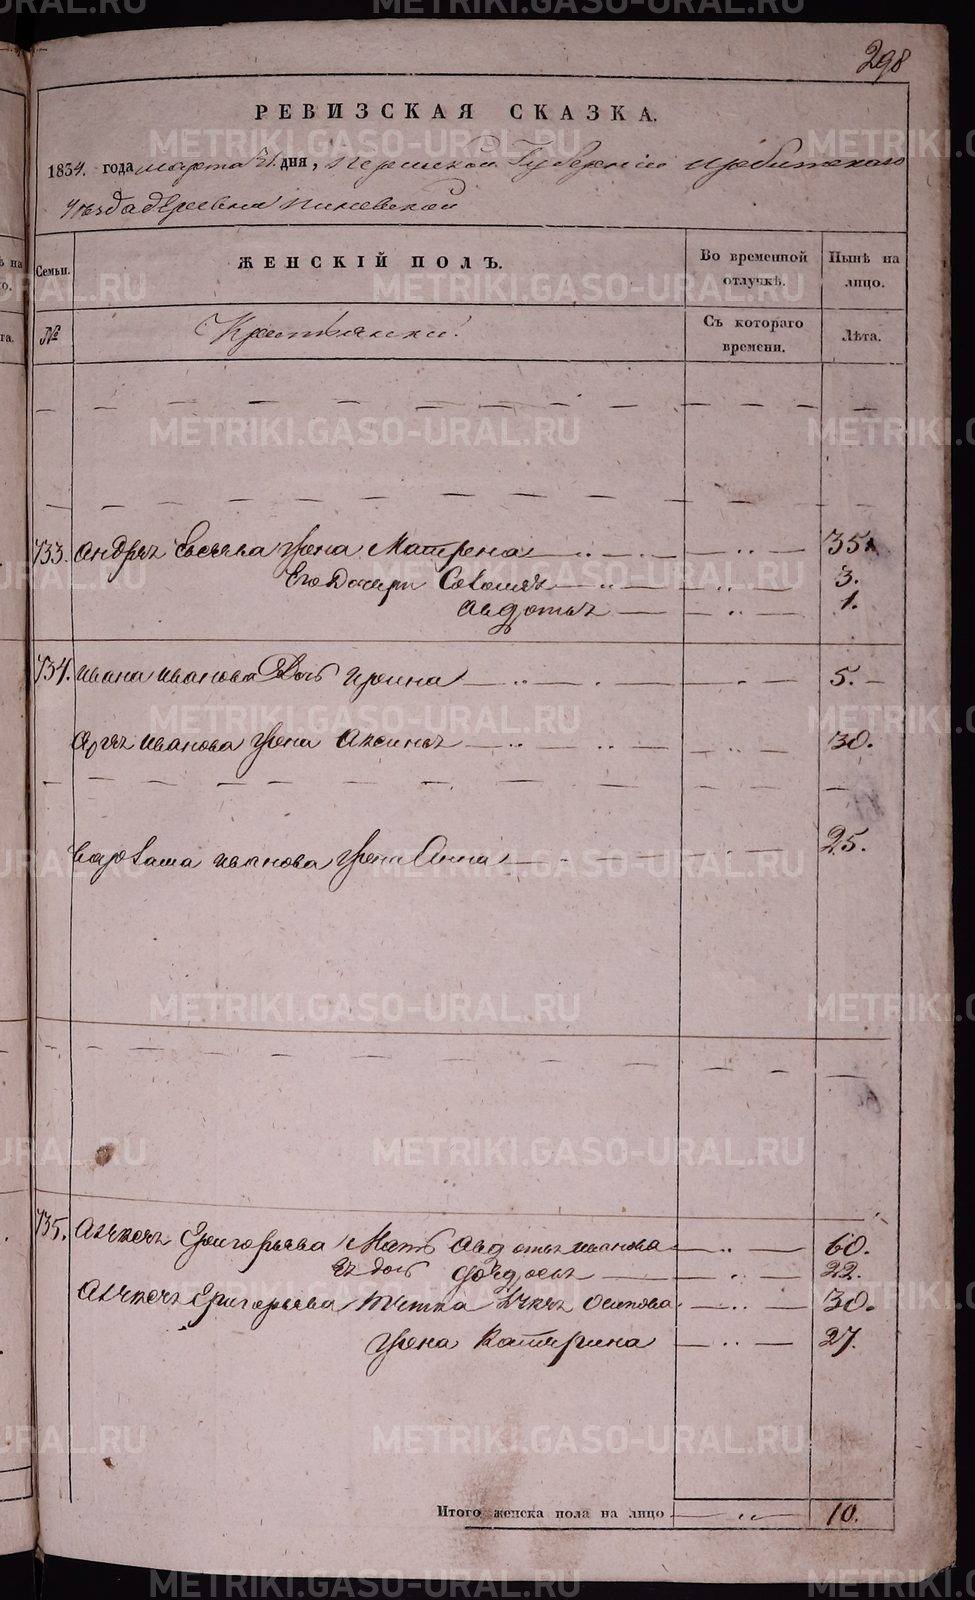 298
РЕВИЗСКАЯ СКАЗКА.
1834. года марта 31. дня, Пермской Губернии Ирбитскаго
уезда деревни
Семьи. ЖЕНСКІЙ ПОЛЪ. Во временной отлучкѣ. Нынѣ на лицо.
№ Крестьянки. Съ котораго времени. Лѣта.
733. Андрея Евсеева жена Матрена 35.
Его дочери 3.
Авдотья 1.
734. Ивана Иванова дочь Ирина 5.
Иванова жена Аксинья 30.
Иванова жена Анна 25.
735. Алексея Григорьева Мать Авдотья Иванова 60.
Ее дочь Федосья 22.
Алексея Григорьева Осипова 30.
жена Катерина 27.
Итого женска пола на лицо 10.
METRIKI.GASO-URAL.RU